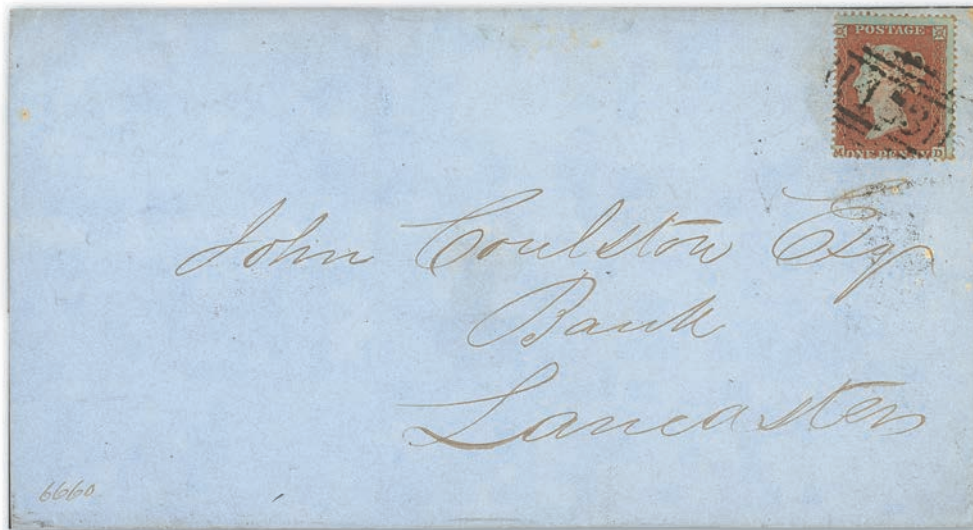 POSTAGE
ONE PENNY D
John Coulston Esqr
Bank
Lancaster
6660